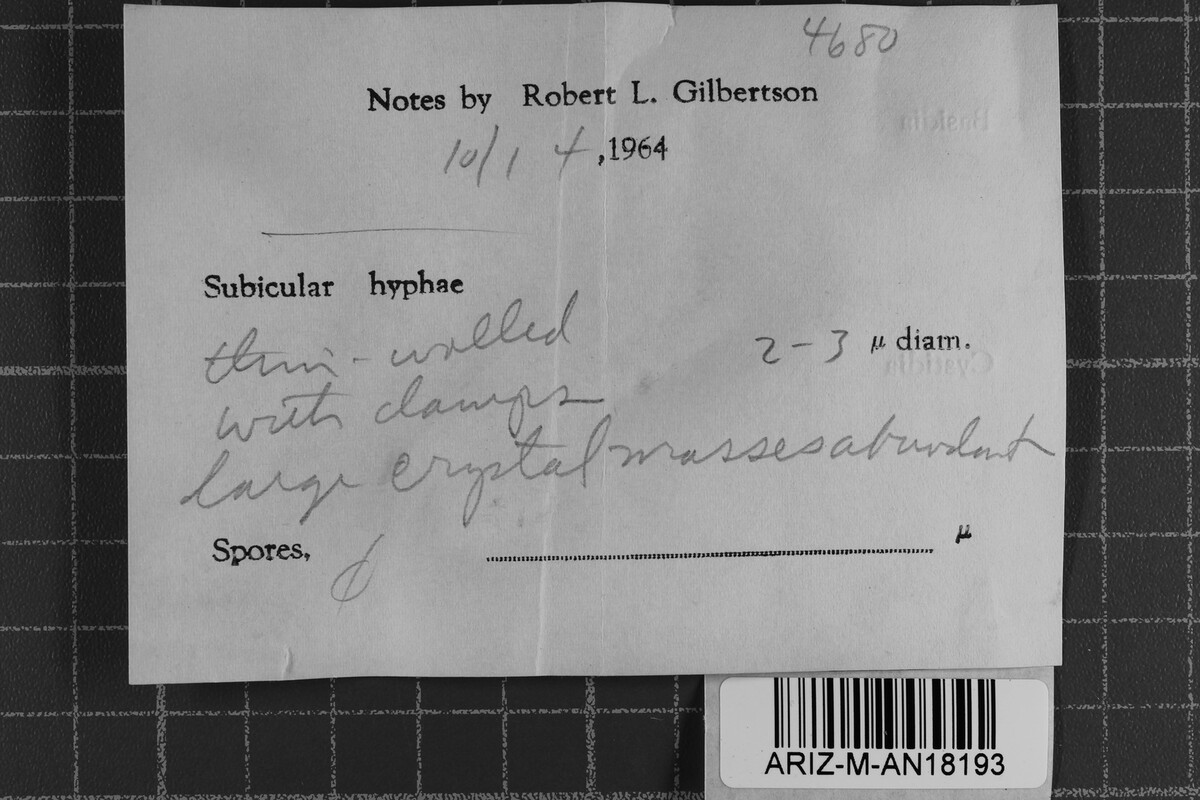 4680
Notes by Robert L. Gilbertson
10/1 4, 1964
Subicular hyphae
thin-walled 2-3 µ diam.
with clamps
large crystal masses abundant
Spores, ∅ .................... µ
ARIZ-M-AN18193